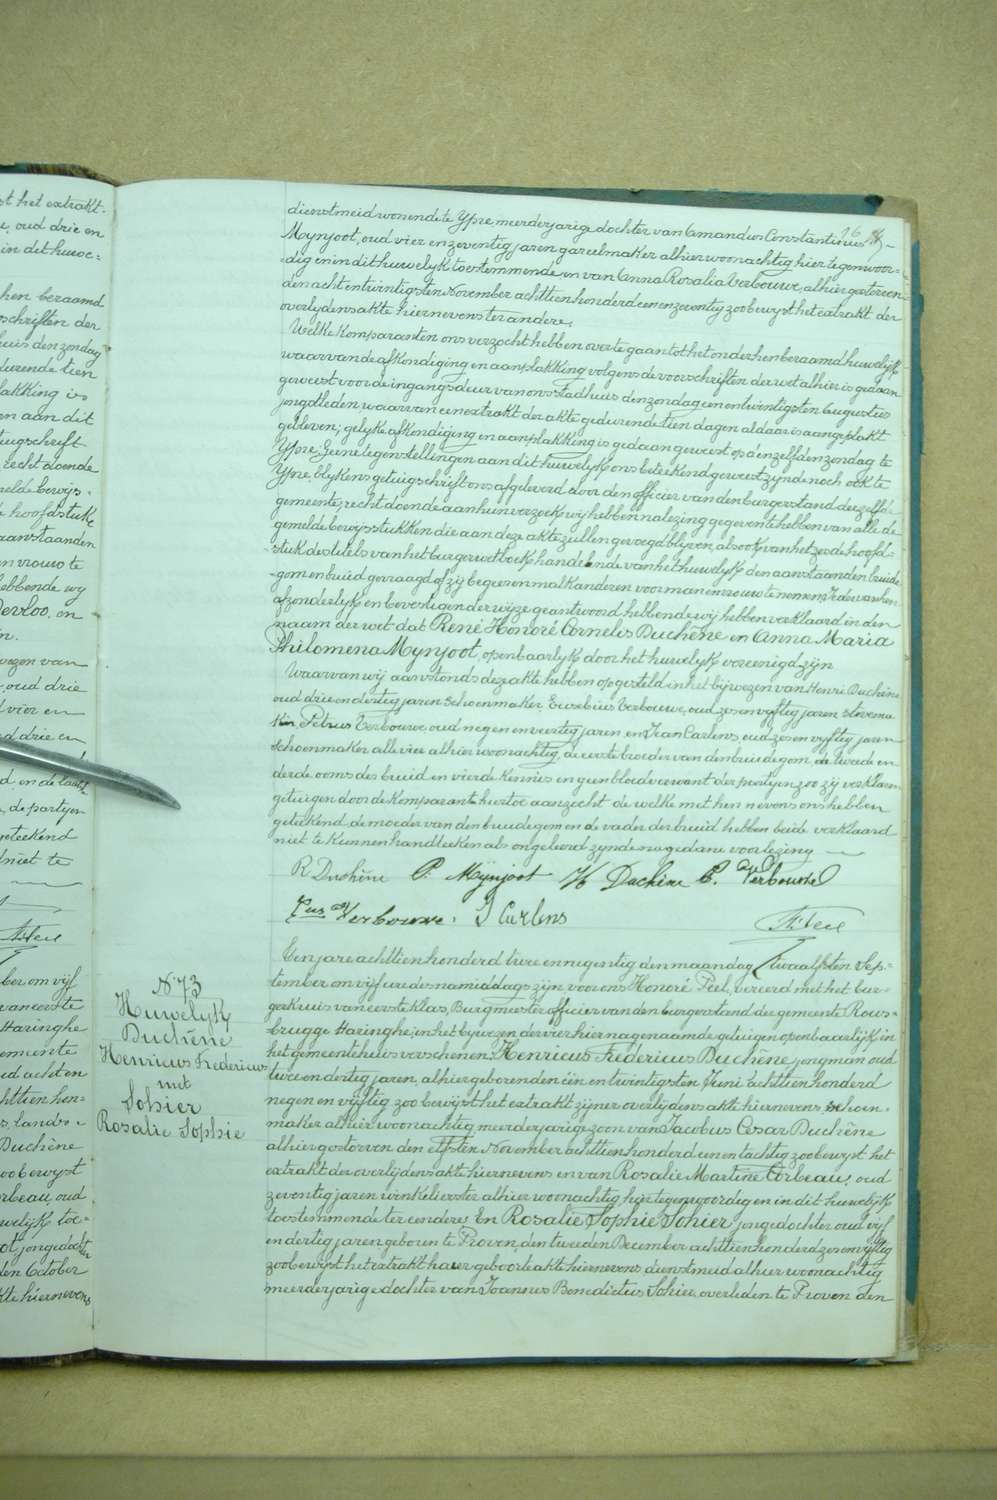 st het extrakt.
, oud drie en
in dit huwe=
hen beraamd
schriften der
huis den zondag
durende tien
lakking is
en aan dit
tuigschrift
recht doende
melde bewys-
e hoofdstuk
aanstaanden
n vrouw te
hebbende wy
Devloo, en
n.
wezen van
, oud drie
d vier en
d drie en
d en de laat-
, de partyen
geteekend
niet te
ber om vyf
van eerste
Haringhe
emeente
ud acht en
chttien hon-
s, lands=
Duchêne
oo bewyst
rbeau, oud
welyk toe-
ot, jongedochter
den October
kte hiernevens
16
dienstmeid wonende te Ypre, meerderjarige dochter van Amandus Constantinus
Mynjoot, oud vier en zeventig jaren gareelmaker alhier woonachtig hier tegenwoor-
dig en in dit huwelyk toestemmende en van Anna Rosalia Verbouwe, alhier gestorven
den acht en twintigsten November achttien honderd een en zeventig zoo bewyst het extrakt der
overlydens akte hiernevens ter andere.
Welke komparanten ons verzocht hebben over te gaan tot het onder hen beraamd huwelyk
waarvan de afkondiging en aanplakking volgens de voorschriften der wet alhier is gedaan
geweest voor de ingangsdeur van ons Stadhuis den zondag een en twintigsten Augustus
jongstleden, waarvan een extrakt der akte gedurende tien dagen aldaar is aangeplakt
gebleven; gelyke afkondiging en aanplakking is gedaan geweest op dienzelfden zondag te
Ypre; Geene tegenstellingen aan dit huwelyk ons beteekend geweest zynde noch ook te
Ypre, blykens getuigschrift ons afgeleverd door den officier van den burgerstand derzelfde
gemeente; recht doende aan hun verzoek, wy hebben na lezing gegeven te hebben van alle de
gemelde bewysstukken die aan deze akte zullen gevoegd blyven, alsook van het zesde hoofd-
stuk des titels van het burger wetboek handelende van het huwelyk den aanstaanden bruide
gom en bruid gevraagd of zy begeeren malkanderen voor man en vrouw te nemen; Ieder van hen
afzonderlyk en bevestigender wyze geantwoord hebbende wy hebben verklaard in den
naam der wet dat René Honoré Cornelis Duchêne en Anna Maria
Philomena Mynjoot, openbaarlyk door het huwelyk vereenigd zyn
Waarvan wy aanstonds deze akte hebben opgesteld in het bijwezen van Henri Duchêne
oud drie en dertig jaren schoenmaker, Eusebius Verbouwe, oud zes en vyftig jaren stovema
ker Petrus Verbouwe, oud negen en veertig jaren en Jean Carlens oud zes en vyftig jaren
schoenmaker, alle vier alhier woonachtig, de eerste broeder van den bruidegom de tweede en
derde ooms der bruid en vierde kennis en geen bloedverwant der partyen zoo zy verklaren
getuigen door de komparanten hiertoe aanzocht de welke met hen nevens ons hebben
geteekend, de moeder van den bruidegom en de vader der bruid hebben beide verklaard
niet te kunnen handteeken als ongeleerd zynde na gedane voorlezing
R Duchêne P. Mynjoot H Duchêne P. Verbouwe
Eus Verbouwe. J Carlens
N 73
Huwelyk
Duchêne
Henricus Fredericus
met
Sohier
Rosalie Sophie
Ten jare achttien honderd twee en negentig den maandag twaalfsten Sep-
tember om vyf ure des namiddags zyn voor ons Honoré Feel, vereerd met het bur-
gerkruis van eerste klas, Burgmeester officier van den burgerstand der gemeente Rous-
brugge Haringhe, in het bywezen der vier hiernagenaamde getuigen openbaarlijk in
het gemeentehuis verschenen: Henricus Fredericus Duchêne jongman oud
twee en dertig jaren, alhier geboren den één en twintigsten Juni achttien honderd
negen en vyftig zoo bewijst het extrakt zijner overlijdens akte hiernevens, schoen-
maker alhier woonachtig meerderjarige zoon van Jacobus Cesar Duchêne
alhier gestorven den elfsten November achttien honderd een en tachtig zoo bewyst het
extrakt der overlydens akte hiernevens en van Rosalie Martine Corbeau, oud
zeventig jaren winkelierster alhier woonachtig hier tegenwoordig en in dit huwelyk
toestemmende ter eendere; En Rosalie Sophie Sohier jongedochter oud vyf
en dertig jaren geboren te Proven, den tweeden December achttien honderd zes en vyftig
zoo bewyst het extrakt harer geboorteakte hiernevens dienstmeid alhier woonachtig
meerderjarige dochter van Joannes Benedictus Sohier, overleden te Proven den